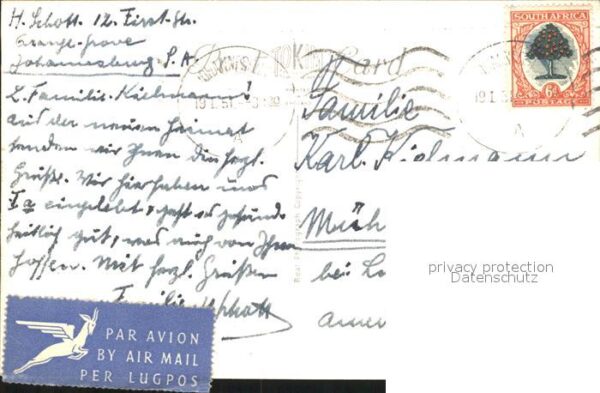 H. Schott. 12. First-Str.
Orange-Grove
Johannesburg. S. A.
L. Familie Kielmann!
aus der neuen Heimat
senden wir Ihnen die herzl.
Grüße. Wir hier haben uns
Ia eingelebt & geht es gesund-
heitlich gut, was auch von Ihnen
hoffen. Mit herzl. Grüßen
Familie Schott
Post Card
19 I 51
A
SOUTH AFRICA
6D
POSTAGE
Familie
Karl Kielmann
Müh
bei Lo
amer
Real Photograph Copyright
privacy protection
Datenschutz
PAR AVION
BY AIR MAIL
PER LUGPOS